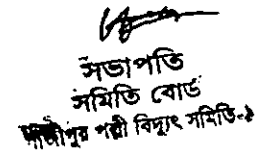 সভাপতি
সমিতি বোর্ড
গাজীপুর পল্লী বিদ্যুৎ সমিতি-১